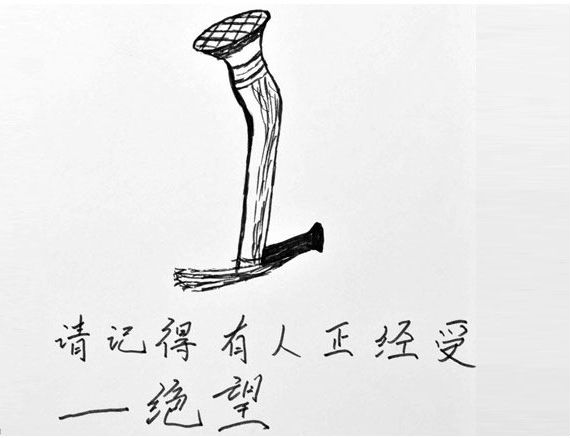 请记得有人正经受
—绝望